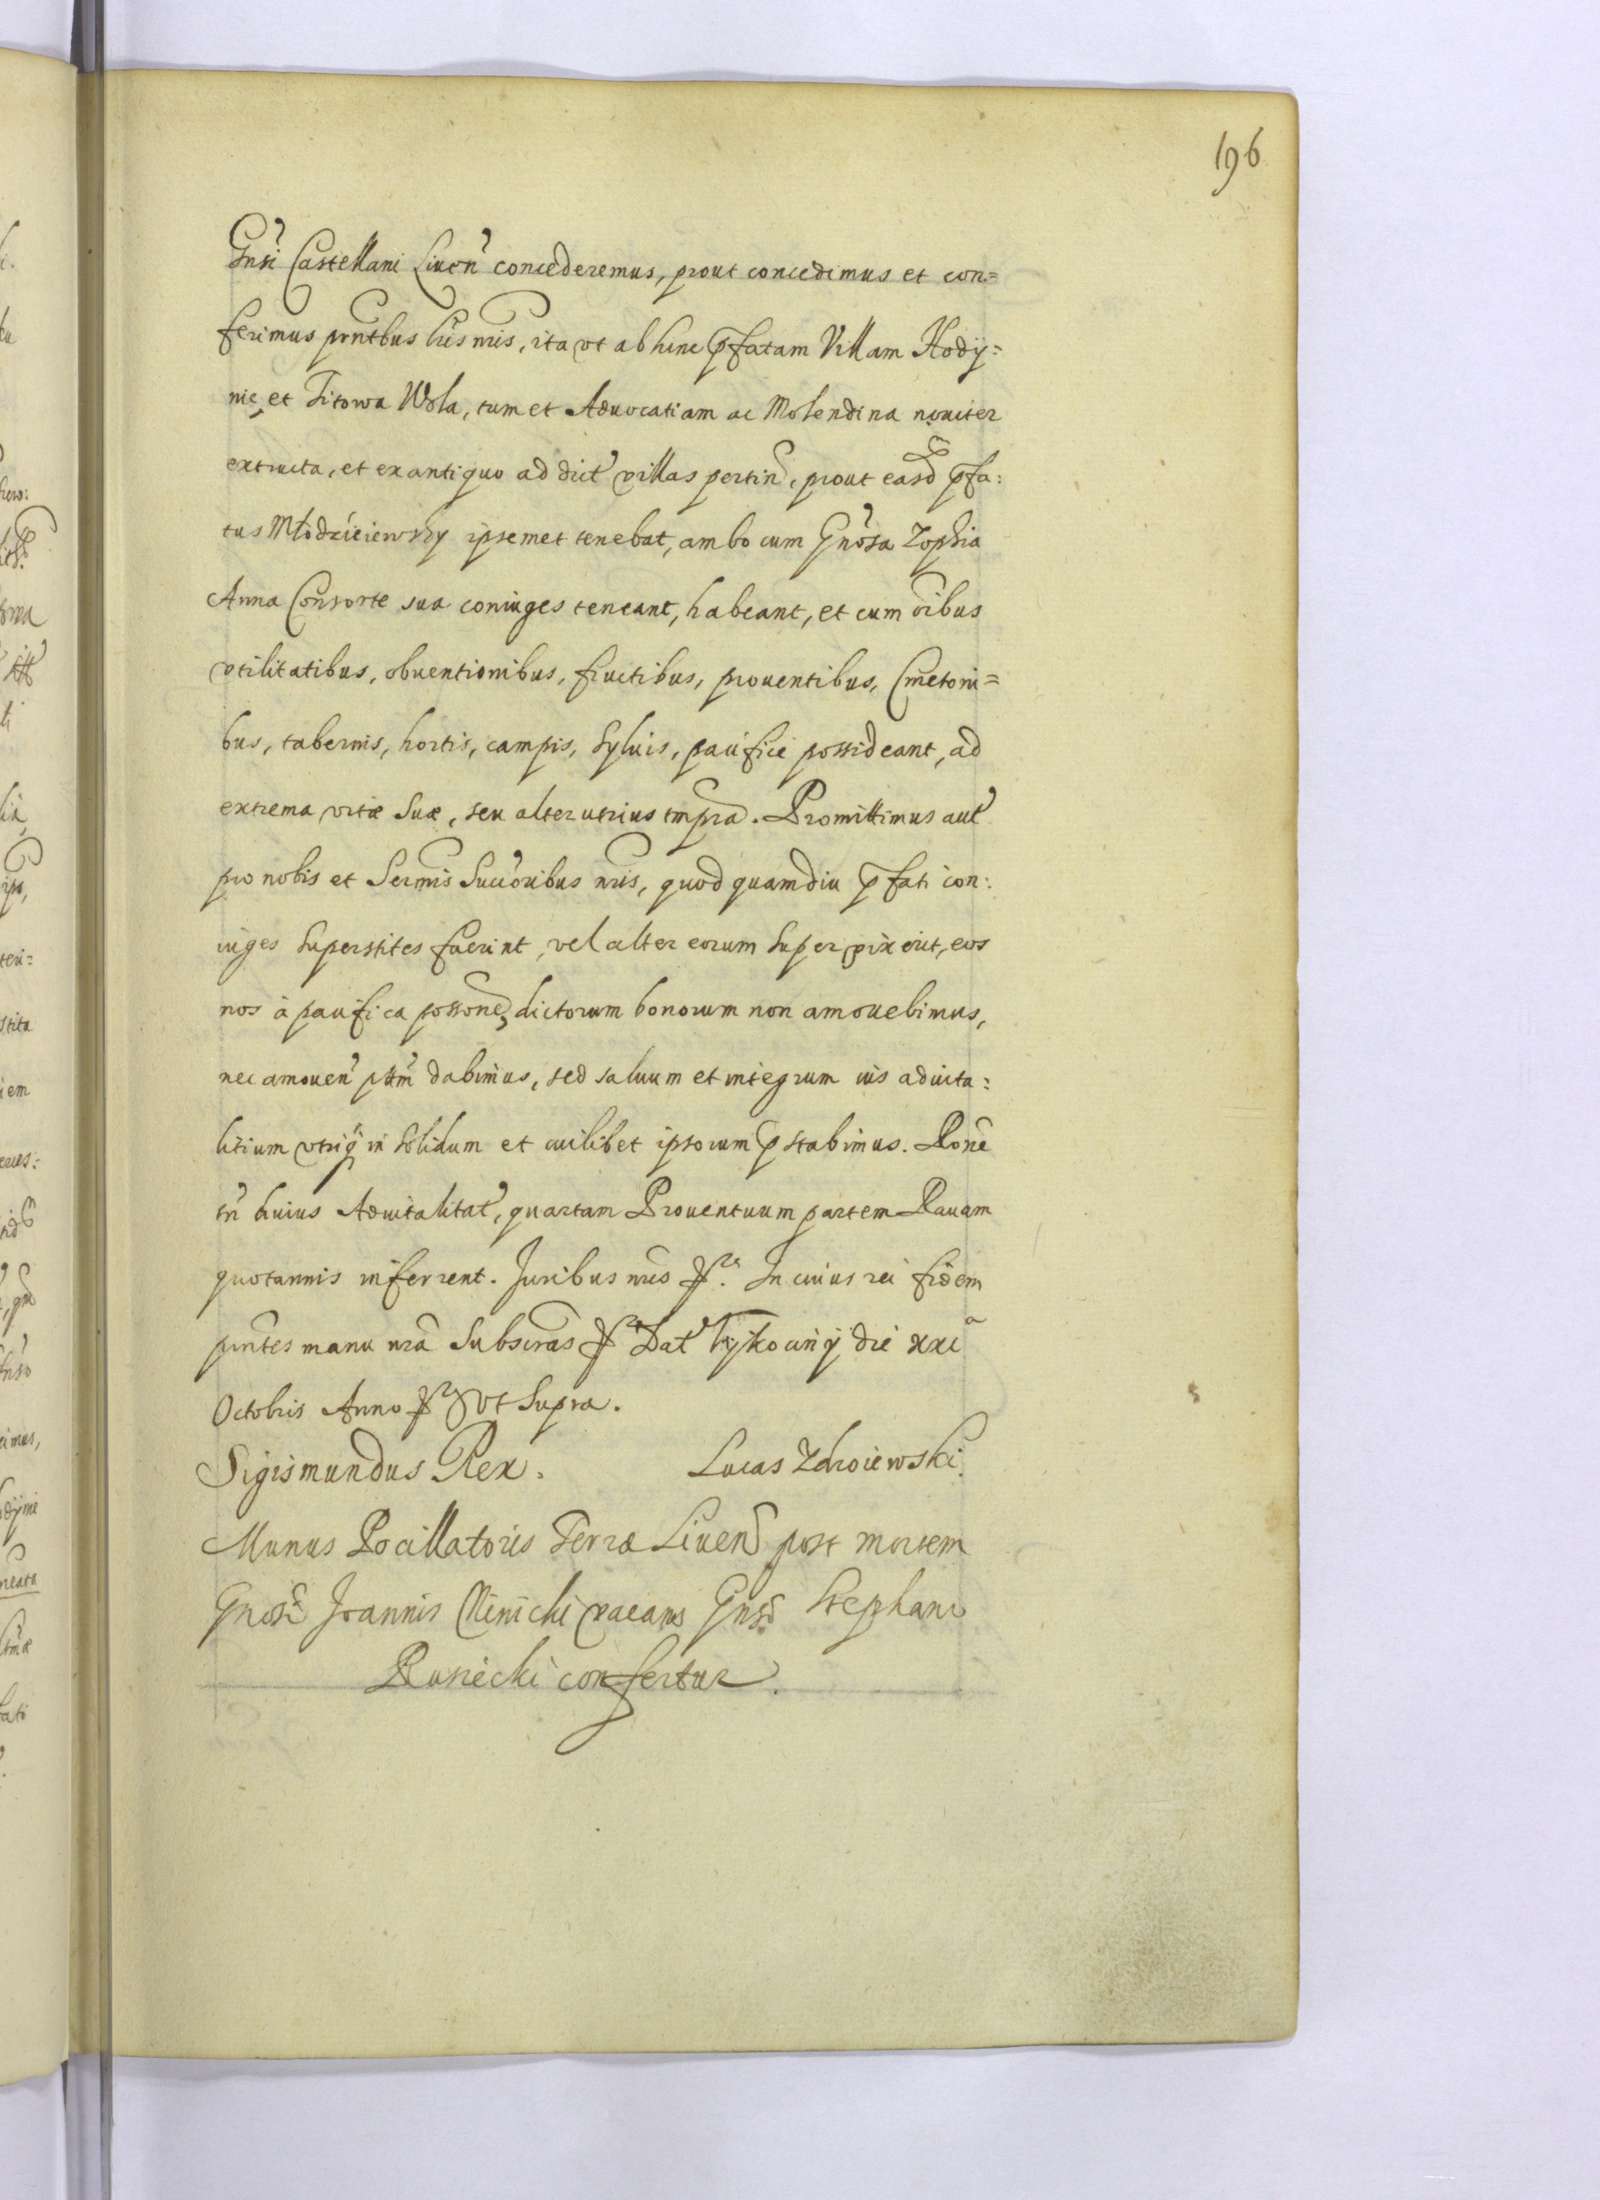 196
Gnsi Castellani Liuen concederemus, prout concedimus et con=
ferimus prntbus lris nris, ita vt ab hinc pfatam Villam Hodÿ=
nie et Titowa Wola, tum et Aduocatiam ac Molendina nouiter
extructa, et ex antiquo ad dict villas pertin, prout easd pfa:
tus Młodzieiewsky ipsemet tenebat, ambo cum Gnosa Zophia
Anna Consorte sua coniuges teneant, habeant, et cum oibus
vtilitatibus, obuentionibus, fructibus, prouentibus, Cmetoni=
bus, tabernis, hortis, campis, Syluis, pacifice possideant, ad
extrema vitæ Suæ, seu alterutrius tmpra. Promittimus aut
pro nobis et Sermis Succoribus nris, quod quamdiu pfati con:
iuges Superstites fuerint, vel alter eorum Superuixerit, eos
nos à pacifica possone dictorum bonorum non amouebimus,
nec amouen ptm dabimus, sed saluum et integrum ius aduita:
litium vtriq in Solidum et cuilibet ipsorum pstabimus. Rone
tn huius Aduitalitat, quartam Prouentuum partem Rauam
quotannis inferrent. Juribus nris &c. In cuius rei fidem
pnntes manu nra Subscras &c Dat Tykocinÿ die xxi a
Octobris Anno &c vt Supra.
Sigismundus Rex. Lucas Zdroiewski.
Munus Pocillatoris Terræ Liuen post mortem
Gnosi Joannis Clinicki vacans Gnso Stephano
Rusiecki confertur.